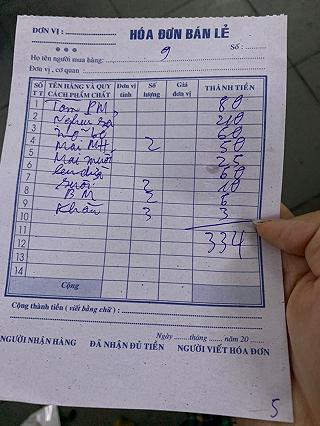 ĐƠN VỊ :
HÓA ĐƠN BÁN LẺ
9
Số :
Họ tên người mua hàng:
Đơn vị, cơ quan
SỐ TT TÊN HÀNG VÀ QUY CÁCH PHẨM CHẤT Đơn vị tính Số lượng Giá đơn vị THÀNH TIỀN
1 Tôm 80
2 210
3 60
4 2 50
5 25
6 60
7 2 10
8 BM 2 6
9 Khăn 3 3
10
11 334
12
13
14
Cộng
Cộng thành tiền ( viết bằng chữ ) :
Ngày tháng năm 20
NGƯỜI NHẬN HÀNG ĐÃ NHẬN ĐỦ TIỀN NGƯỜI VIẾT HÓA ĐƠN
5